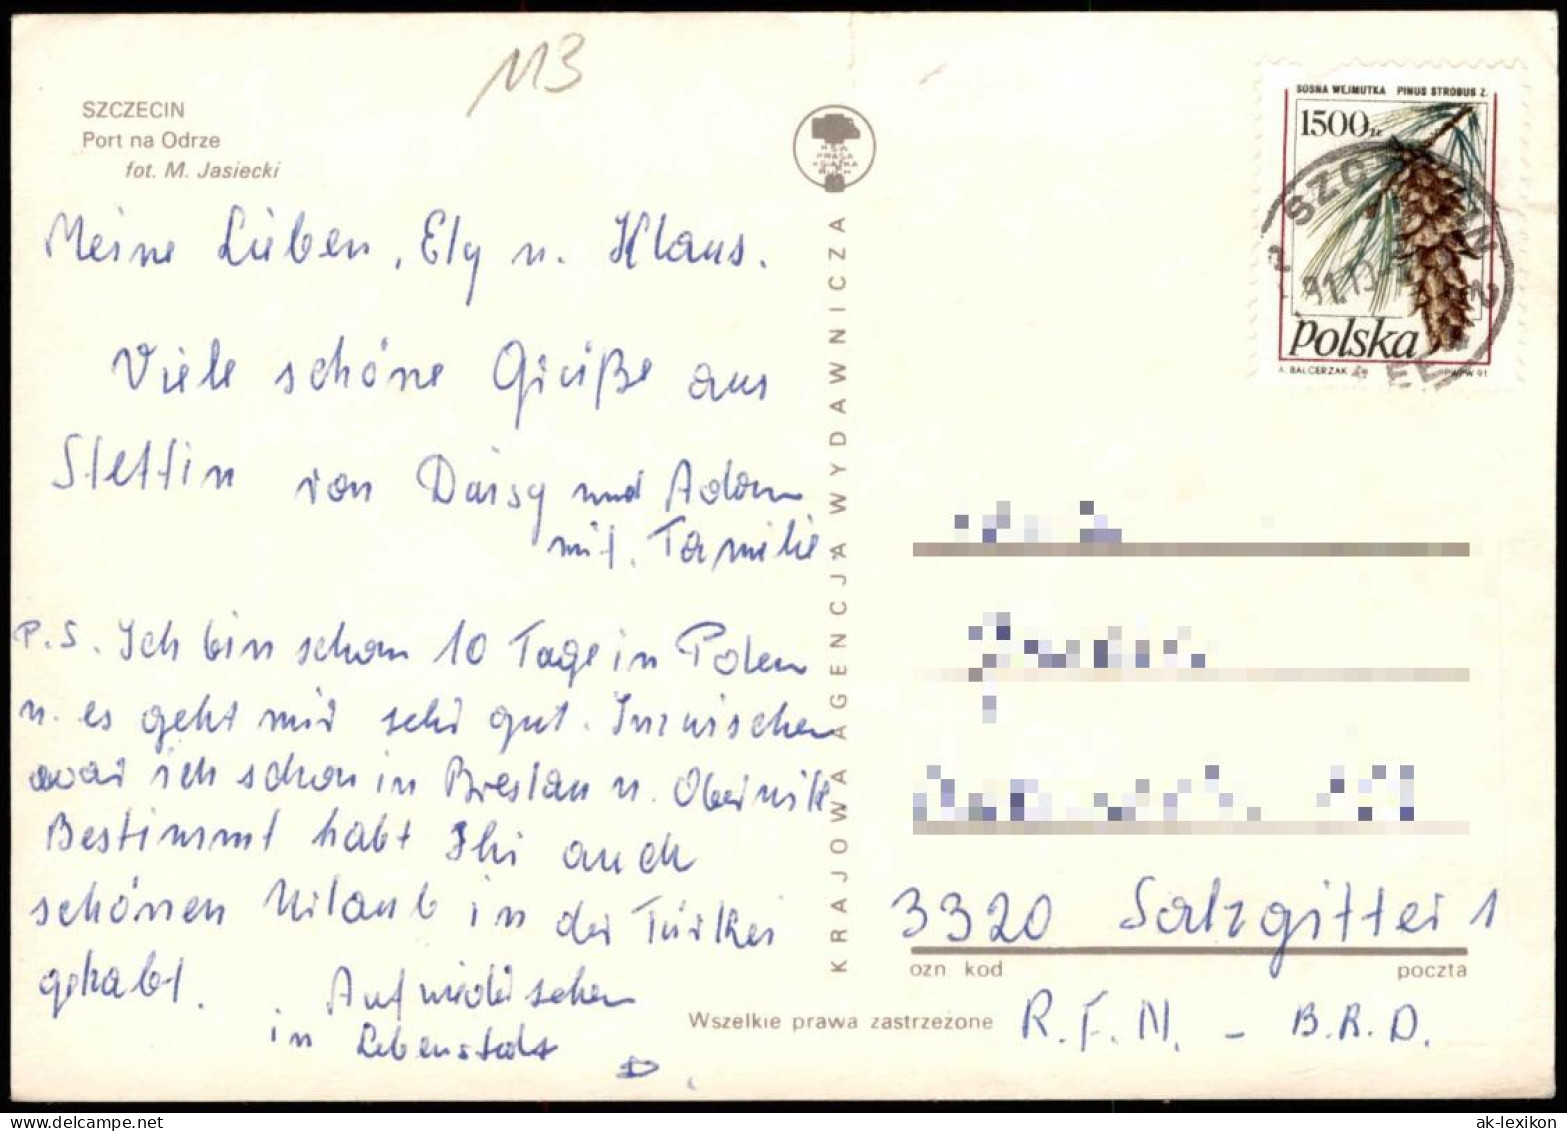 113
SZCZECIN
Port na Odrze
fot. M. Jasiecki
Meine Lieben, Ely u. Klaus.
Viele schöne Grüße aus
Stettin von Daisy und Adam
mit. Familie
P.S. Ich bin schon 10 Tage in Polen
u. es geht mir sehr gut. Inzwischen
war ich schon in Breslau u. Obernik
Bestimmt habt Ihr auch
schönen Urlaub in der Türkei
gehabt. Auf wiedersehen
in Lebenstedt
D.
KRAJOWA AGENCJA WYDAWNICZA
RSW
PRASA
KSIĄŻKA
RUCH
SOSNA WEJMUTKA PINUS STROBUS Z.
1500 zł
Polska
A. BALCERZAK PWPW 91
3320 Salzgitter 1
ozn kod poczta
R.F.N. - B.R.D.
Wszelkie prawa zastrzeżone
www.delcampe.net
ak-lexikon